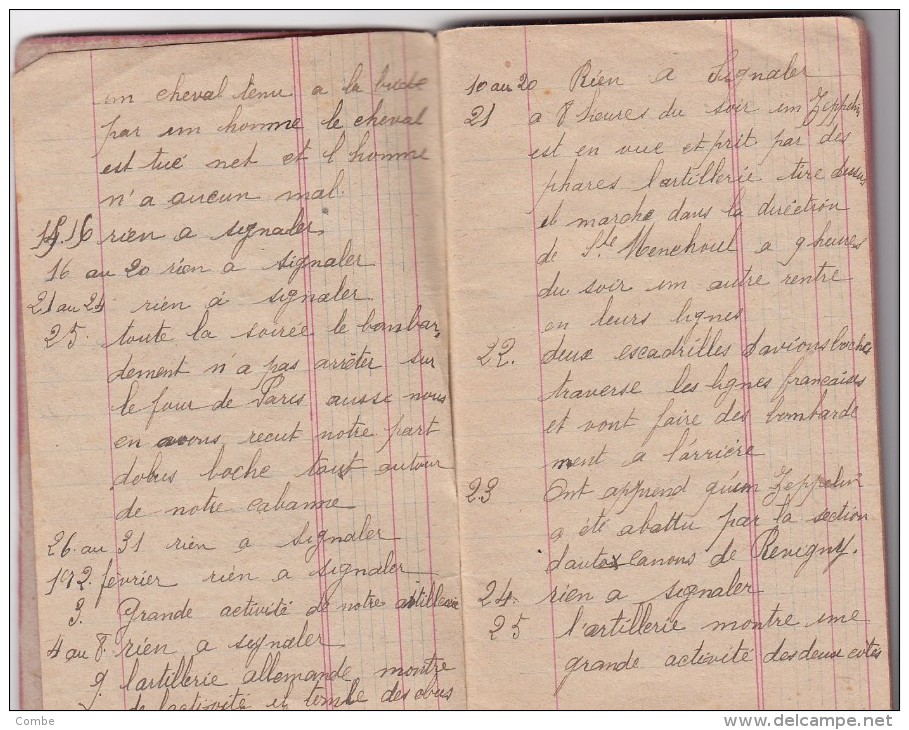 un cheval tenu a la bride
par un homme le cheval
est tué net et l homme
n'a aucun mal.
15.16 rien a signaler.
16 au 20 rien a signaler
21 au 24. rien à signaler
25. toute la soirée le bombar,
dement n'a pas arrêter sur
le four de Paris aussi nous
en avons recut notre part
dobus boche tout autour
de notre cabanne
26. au 31 rien a signaler
1 92. février rien a signaler
3. Grande activité de notre artillerie
4 au 8. rien a signaler
9. lartillerie allemande montre
de lactivité et tombe des obus
10 au 20 Rien a Signaler
21 a 8 heures du soir un Zeppelin
est en vue et prit par des
phares lartillerie tire dessus
il marche dans la direction
de Ste Menehoul a 9 heures
du soir un autre rentre
en leurs lignes
22. deux escadrilles davions boches
traverse les lignes francaises
et vont faire des bombarde
ment a l'arrière
23 Ont apprend qu'un Zeppelin
a été abattu par la section
dauto canons de Revigny.
24. rien a signaler
25 l'artillerie montre une
grande activité des deux cotés
Combe
www.delcampe.net